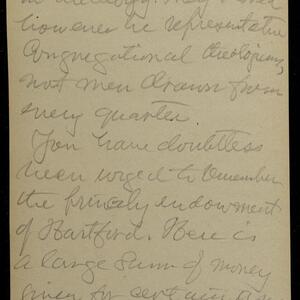 in theology. They should
however be representative
Congregational theologians,
not men drawn from
every quarter.
You have doubtless
been urged to remember
the princely endowment
of Hartford. Here is
a large sum of money
given for certain